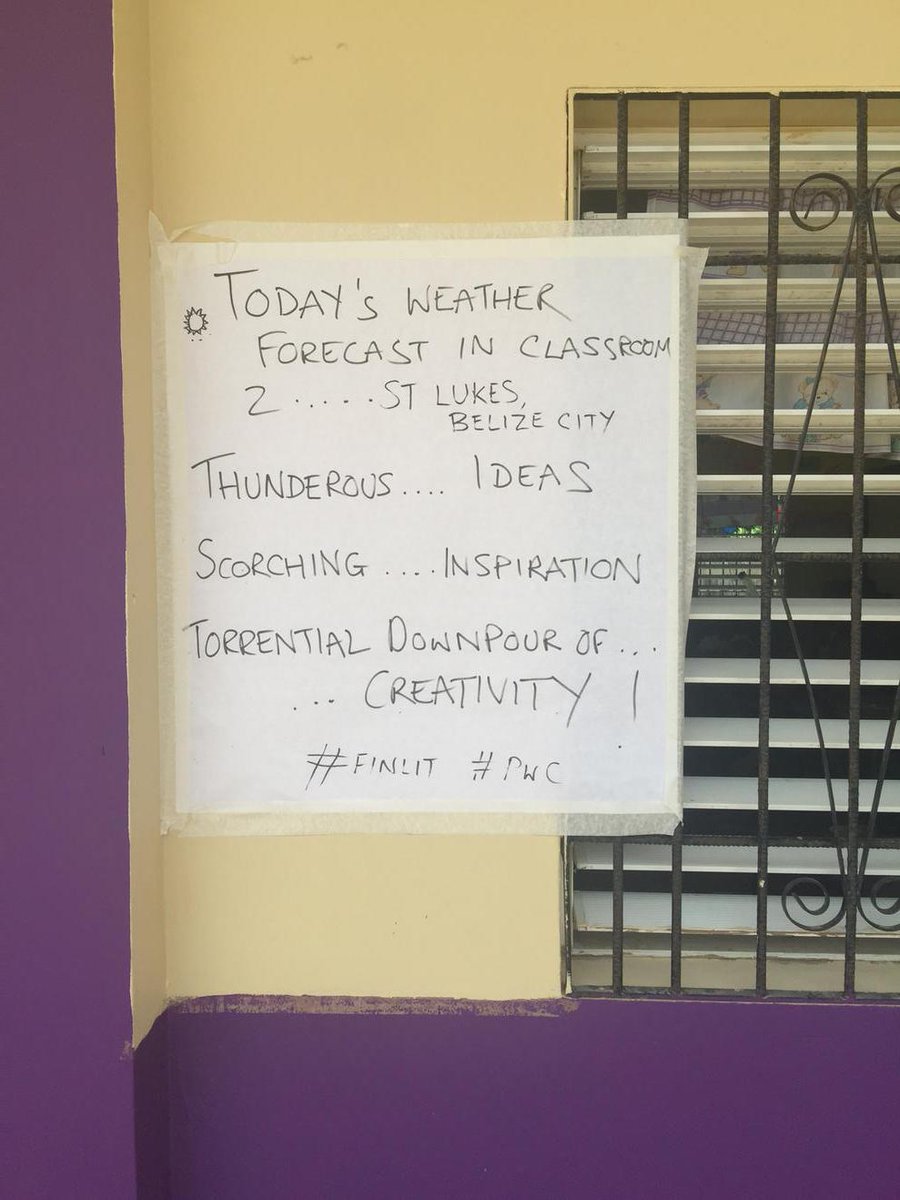 TODAY'S WEATHER
FORECAST IN CLASSROOM
2 ..... ST LUKES,
BELIZE CITY
THUNDEROUS .... IDEAS
SCORCHING .... INSPIRATION
TORRENTIAL DOWNPOUR OF ...
... CREATIVITY !
#FINLIT #PWC